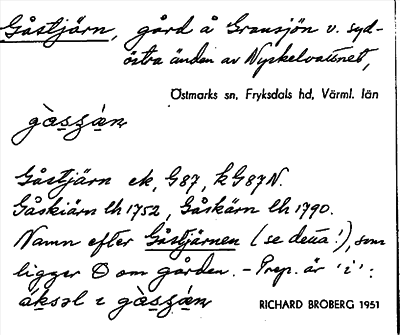 Gåstjärn, gård å Gransjön v. syd-
östra änden av Nyckelvattnet,
Östmarks sn, Fryksdals hd, Värml. län
Gåstjärn ek, G87, kG87N.
Gåskiärn lh 1752, Gåskärn lh 1790.
Namn efter Gåstjärnen (se detta!), som
ligger O om gården. – Prep. är 'i':
RICHARD BROBERG 1951